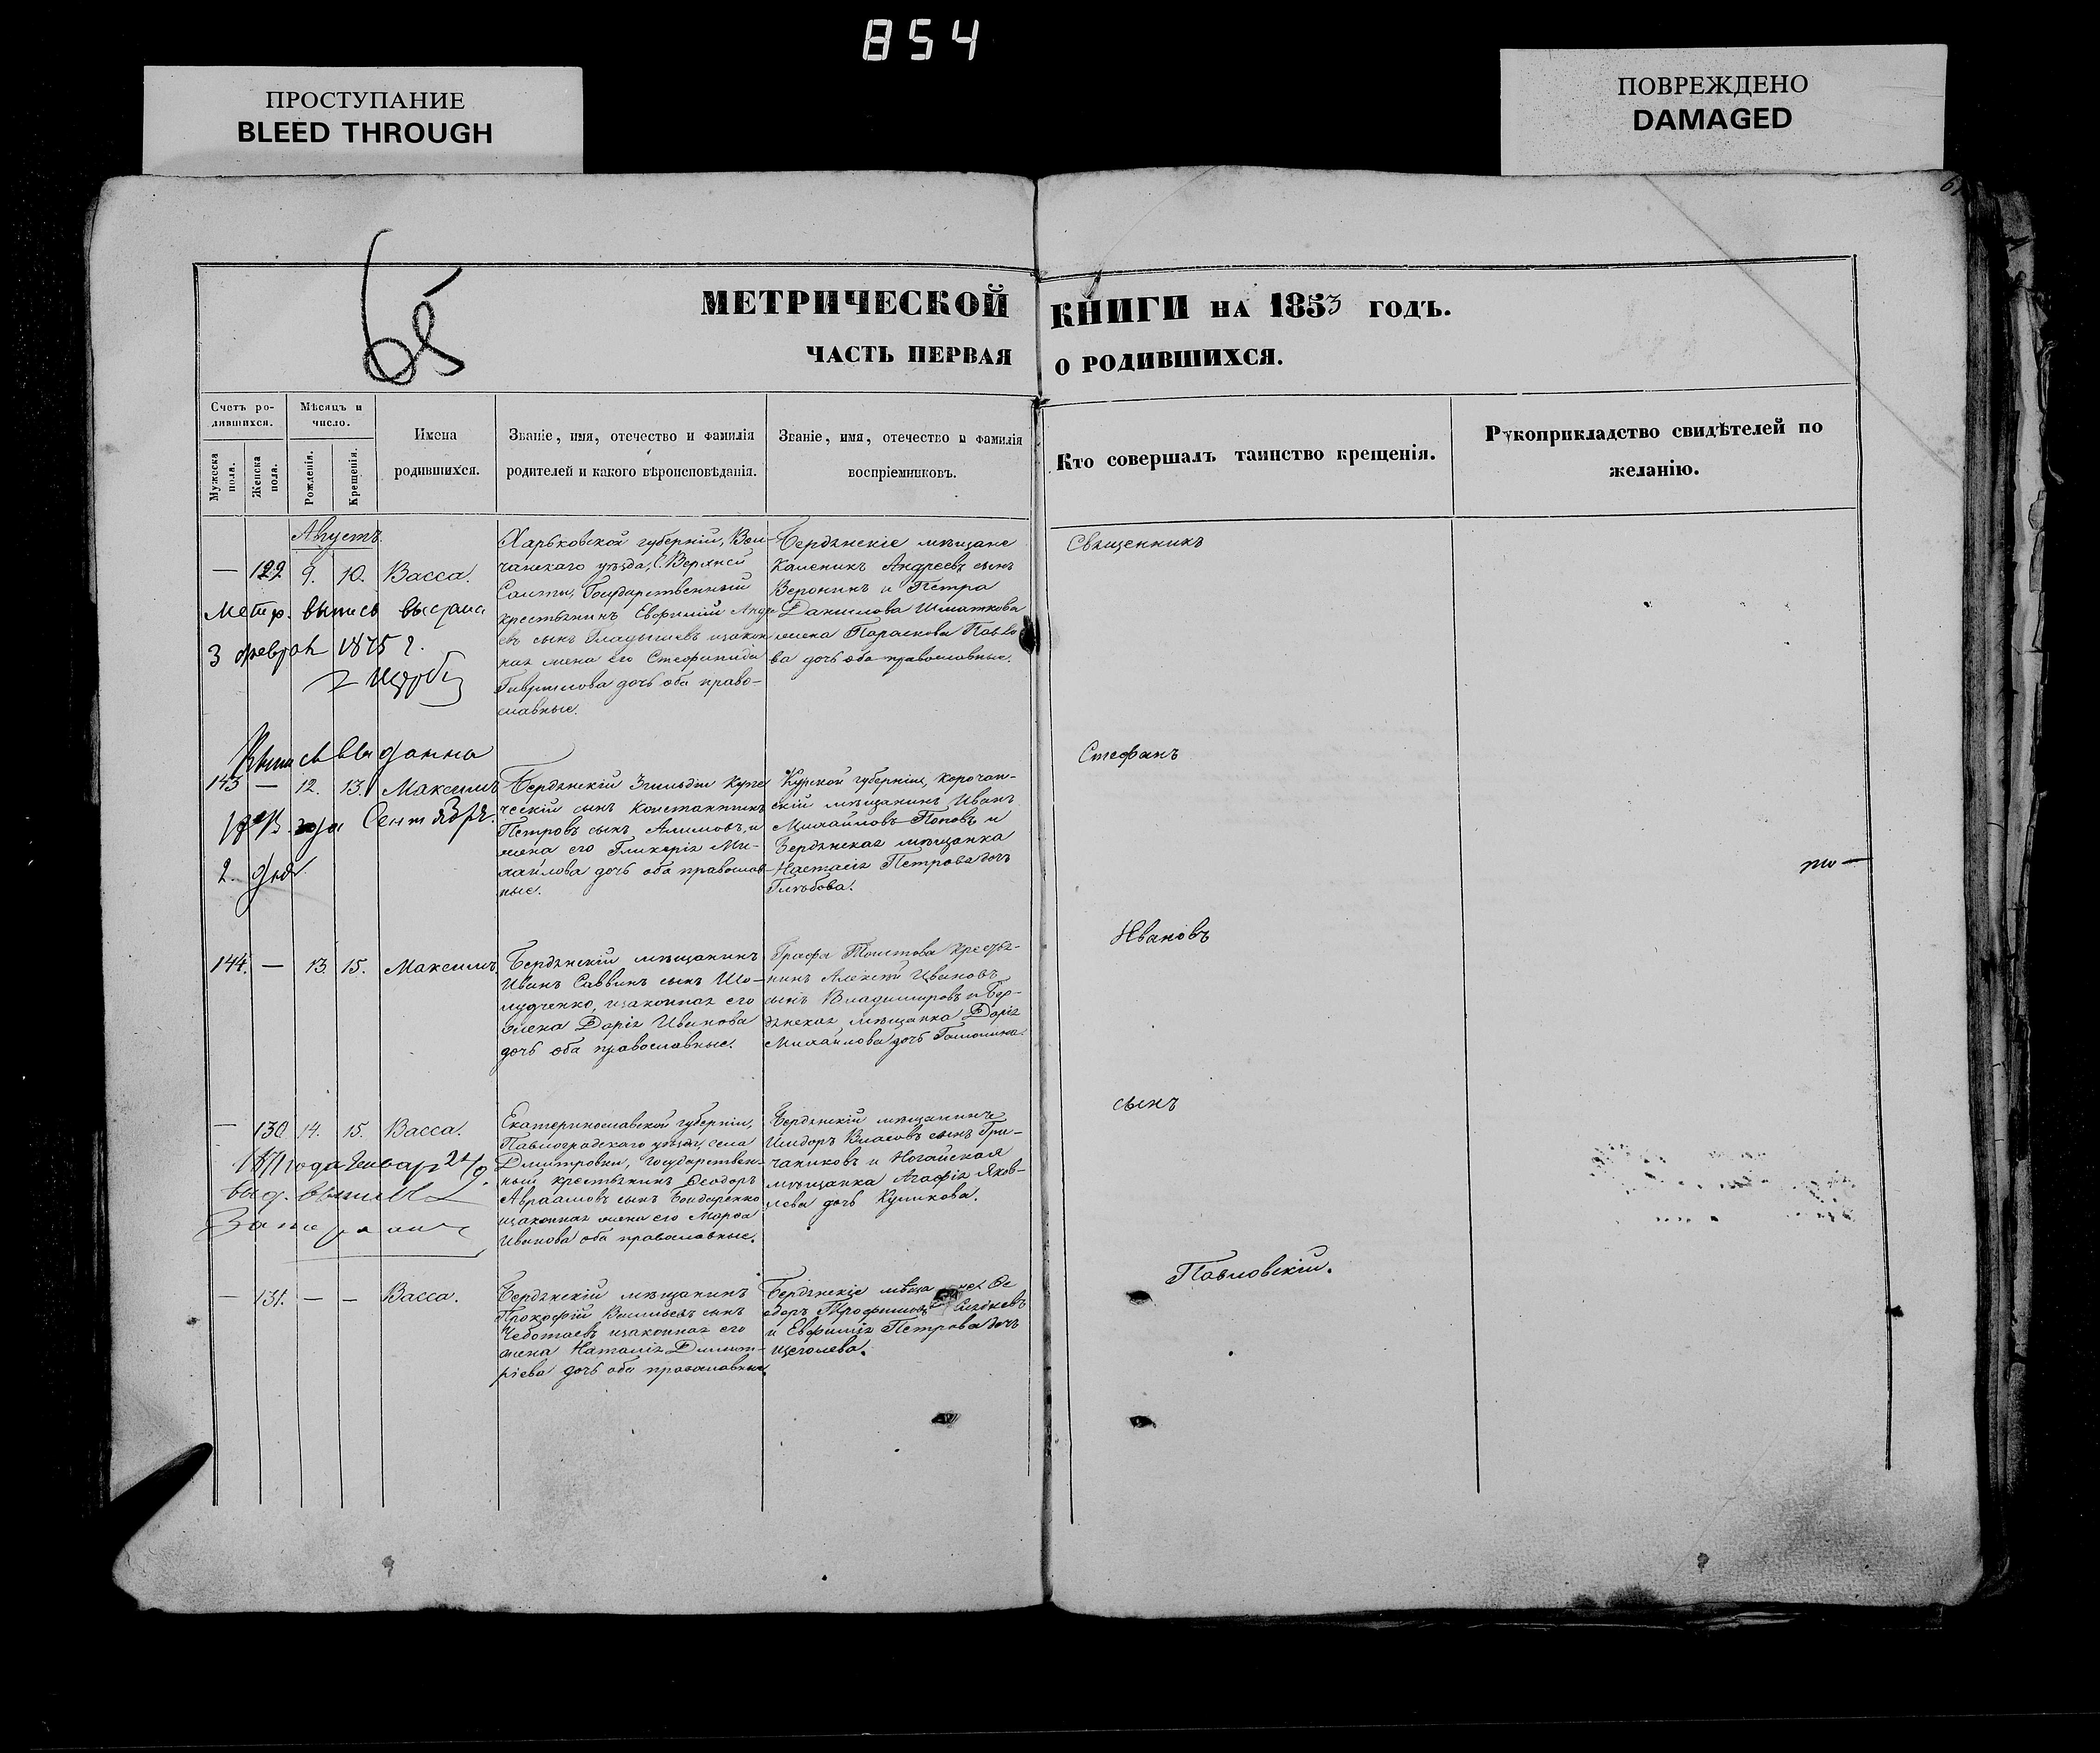 854
ПРОСТУПАНИЕ
BLEED THROUGH
ПОВРЕЖДЕНО
DAMAGED
65
МЕТРИЧЕСКОЙ КНИГИ НА 1853 ГОДЪ.
ЧАСТЬ ПЕРВАЯ О РОДИВШИХСЯ.
Счетъ ро-
дившихся.
Мужеска
пола.
Женска
пола.
Мѣсяцъ и
число.
Рожденія.
Крещенія.
Имена
родившихся.
Званіе, имя, отечество и фамилія
родителей и какого вѣроисповѣданія.
Званіе, имя, отечество и фамилія
воспріемниковъ.
Кто совершалъ таинство крещенія.
Рукоприкладство свидѣтелей по
желанію.
Августъ
— 129 9. 10. Васса.
Метр. выпись выслана
3 февраля 1875 г.
Харьковской губерніи, Вол-
чанскаго уѣзда, С. Верхней
Государственный
крестьянинъ Евфимій Андре
евъ сынъ Гладышевъ изакон
ная жена его Стефанида
Гаврилова дочь оба право-
славные.
Бердянскіе мѣщане
Калиникъ Андреевъ сынъ
Воронинъ и Петра
Данилова Шматкова
жена Параскева Павло
ва дочь оба православные.
Выпись выдана
143 — 12. 13. Максимъ
года Сентября
2 дня
Бердянскій 3 гильдіи купе
ческій сынъ Константинъ
Петровъ сынъ Алимовъ, и
жена его Гликерія Ми-
хайлова дочь оба православ
ные.
Курской губерніи, Корочан-
скій мѣщанинъ Иванъ
Михайловъ Поповъ и
Бердянская мѣщанка
Настасія Петрова дочь
Глѣбова.
144. — 13. 15. Максимъ.
Бердянскій мѣщанинъ
Иванъ Саввинъ сынъ Шо-
лудченко, изаконная его
жена Дарія Иванова
дочь оба православные.
Графа Толстова крестья-
нинъ Алексѣй Ивановъ
сынъ Владимировъ и Бер-
дянская мѣщанка Дарія
Михайлова дочь
— 130 14. 15. Васса.
года Генваря
выд. выпись
Екатеринославской губерніи,
Павлоградскаго уѣзда, села
Дмитровки, Государствен-
ный крестьянинъ Ѳеодоръ
Авраамовъ сынъ Бондаренко
изаконная жена его Марѳа
Иванова оба православные.
Бердянскій мѣщанинъ
Исидоръ Власовъ сынъ Гри-
чаниковъ и Ногайская
мѣщанка Агафія Яков-
лева дочь Куликова.
— 131. — — Васса.
Бердянскій мѣщанинъ
Прокофій Васильевъ сынъ
Чеботаевъ изаконная его
жена Наталія Дмит-
ріева дочь оба православные.
Бердянскіе мѣща Ѳе
одоръ Трофимовъ
и Евфимія Петрова дочь
Щеголева.
Священникъ
Стефанъ
Ивановъ
сынъ
Павловскій.
по—